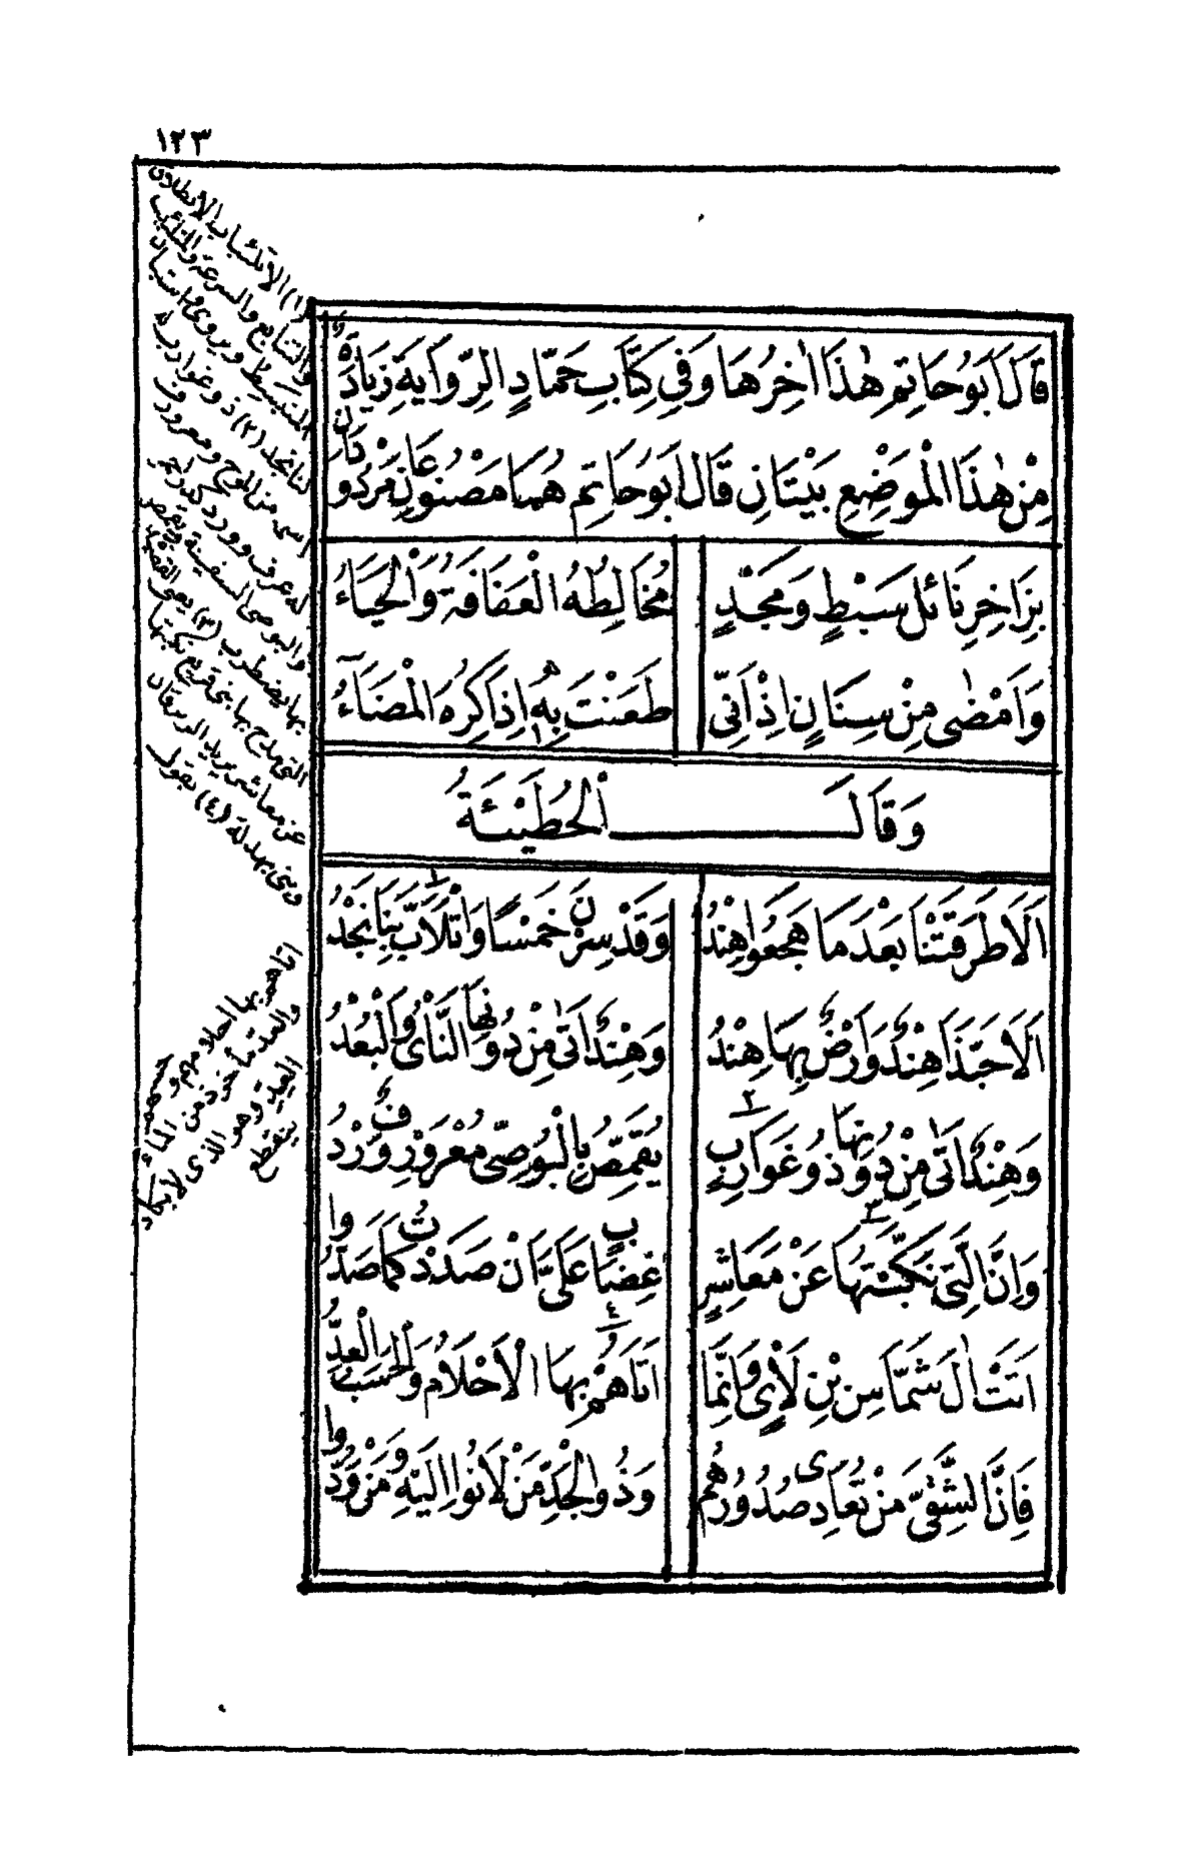 ١٢٣
قَالَ اَبُوْحَاتِمٍ هٰذَا اٰخِرُهَا وَفِي كِتَابِ حَمَّادِ الرِّوَايَةِ زِيَادَةٌ
مِنْ هٰذَا الْمَوْضِعِ بَيْتَانِ قَالَ اَبُوْحَاتِمٍ هُمَا مَصْنُوْعَانِ مَرْدُوْدَانِ
بِزَاخِرِ نَائِلٍ سَبْطٍ وَمَجْدٍ مُخَالِطُهُ الْعَفَافَةُ وَالْحَيَاءُ
وَاَمْضٰى مِنْ سِنَانٍ اِذْ اَنِّي طَعَنْتَ بِهٖ اِذَا كُرِهَ الْمَضَاءُ
وَقَالَ الْحُطَيْئَةُ
اَلَا طَرَقَتْنَا بَعْدَ مَا هَجَعُوْا هِنْدُ وَقَدْ سِرْنَ خَمْسًا وَاتْلَأَبَّ بِنَا نَجْدُ
اَلَا حَبَّذَا هِنْدٌ وَاَرْضٌ بِهَا هِنْدُ وَهِنْدٌ اَتٰى مِنْ دُوْنِهَا النَّاْىُ وَالْبُعْدُ
وَهِنْدٌ اَتٰى مِنْ دُوْنِهَا ذُوْ غَوَارِبٍ يُقَمِّصُ بِالْبُوْصِيِّ مُعْرَوْرِفٌ وَرْدُ
وَاِنَّ الَّتِيْ نَكَّبْتُهَا عَنْ مَعَاشِرٍ غِضَابٍ عَلَىَّ اَنْ صَدَدْتُ كَمَا صَدُّوْا
اَتَتْ اٰلَ شَمَّاسِ بْنِ لَأْىٍ وَاِنَّمَا اَتَاهُمْ بِهَا الْاَحْلَامُ وَالْحَسَبُ الْعِدُّ
فَاِنَّ الشَّقِيَّ مَنْ تُعَادِى صُدُوْرُهُمْ وَذُو الْجَدِّ مَنْ لَانُوْا اِلَيْهِ وَمَنْ وَدُّوْا
(١) الاتلئباب الانطلاق
والتتابع والسرعة والمتلئب
المنبسط ويروى واستبان
لنا نجد (٢) ذو غوارب له
اسى من الموج ومعرورف
له عرف وورد كدر احمر
والبوصى السفينة يقمص
بها يضطرب (٣) يعنى القصيدة
التى مدح بها بنى قريع نكبتها
عن معاشر يريد الزبرقان
وبنى بهدلة (٤) يقول
اتاهم بها احلامهم وحسبهم
والعد ماخوذ من الماء
العد وهو الذى لا يكاد
ينقطع